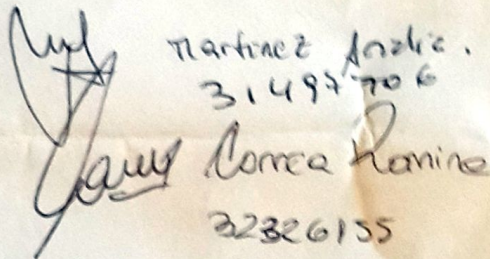 Martinez Analia.
31497706
Correa Romina
32326155